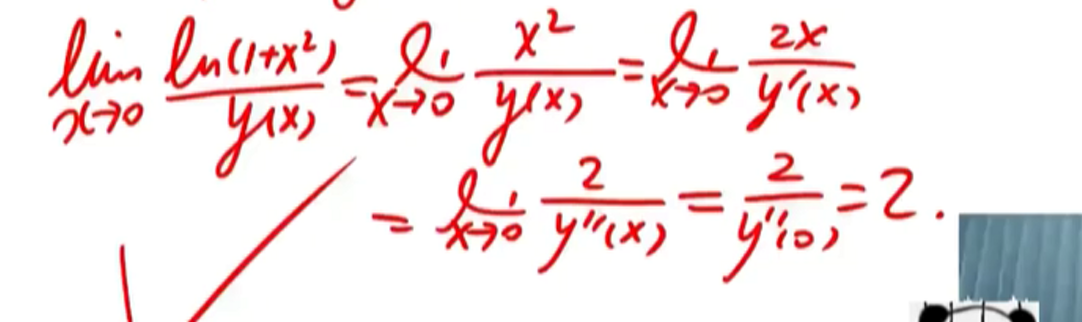 lim x→0 ln(1+x²)/y(x) = lim x→0 x²/y(x) = lim x→0 2x/y'(x)
= lim x→0 2/y''(x) = 2/y''(0) = 2.